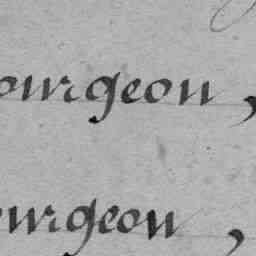 ourgeon,
urgeon,